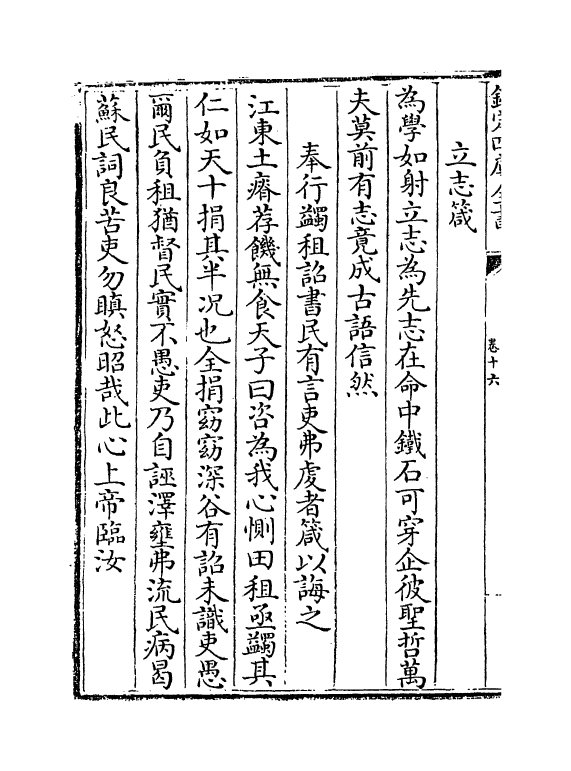 欽定四庫全書
卷十六
立志箴
為學如射立志為先志在命中鐵石可穿企彼聖哲萬
夫莫前有志竟成古語信然
奉行蠲租詔書民有言吏弗虔者箴以誨之
江東土瘠荐饑無食天子曰咨為我心惻田租亟蠲其
仁如天十捐其半况也全捐窈窈深谷有詔未識吏愚
爾民負租猶督民實不愚吏乃自誣澤壅弗流民病曷
蘇民詞良苦吏勿瞋怒昭哉此心上帝臨汝